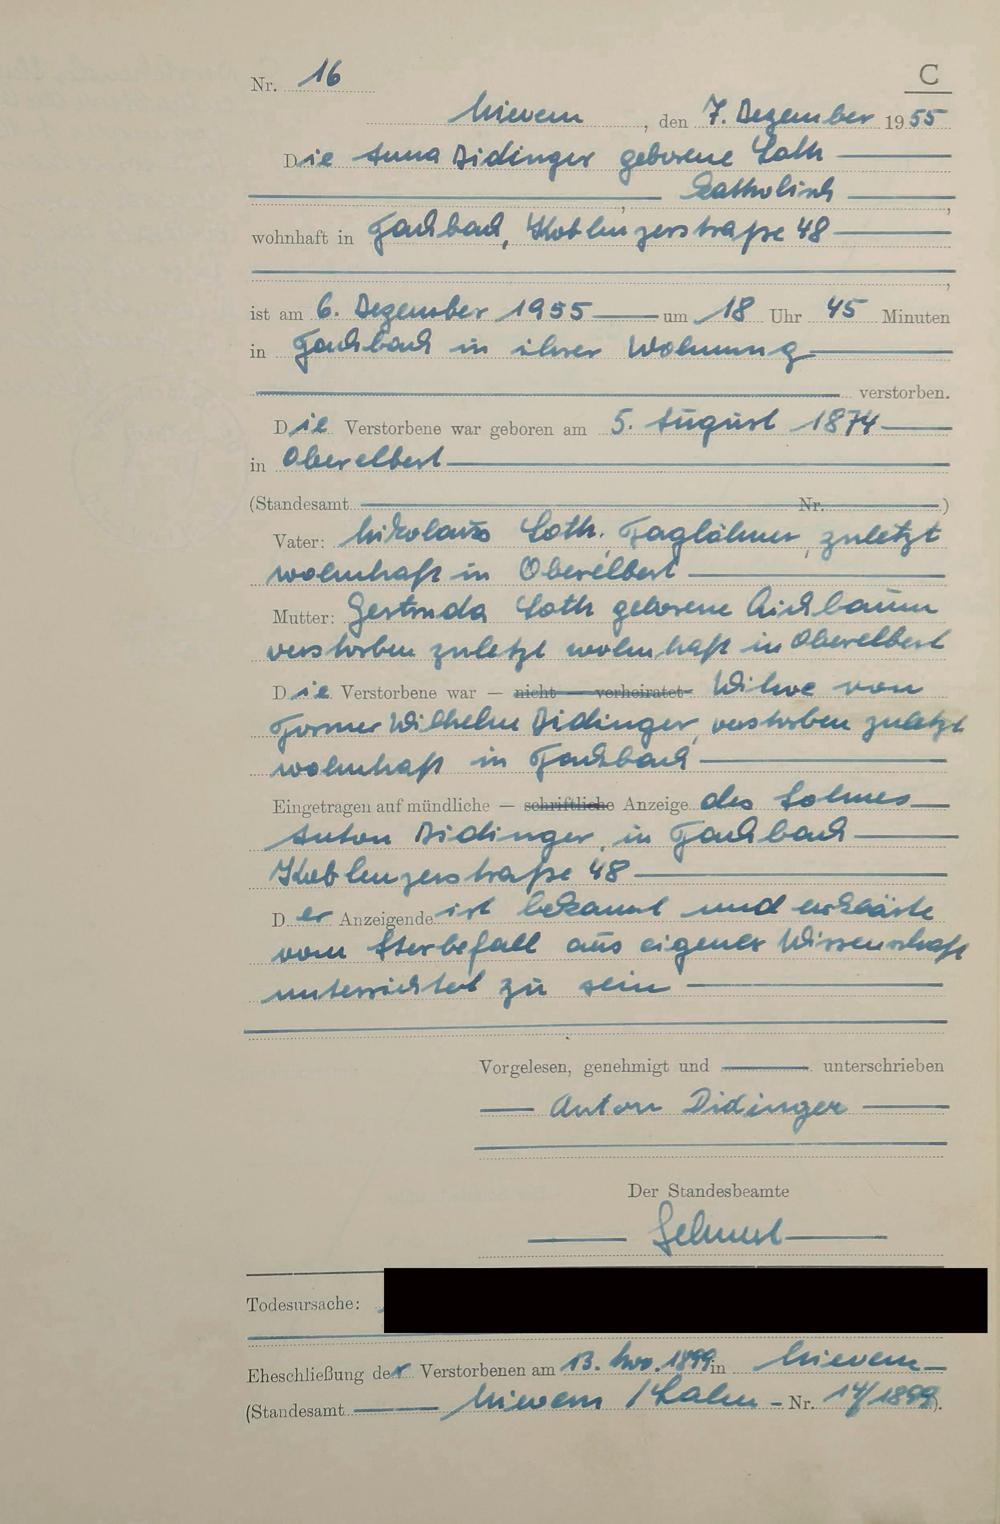 Nr. 16
C
Nievern, den 7. Dezember 1955
Die Anna Didinger geborene Loth
katholisch,
wohnhaft in Fachbach, Koblenzerstraße 48
ist am 6. Dezember 1955 um 18 Uhr 45 Minuten
in Fachbach in ihrer Wohnung
verstorben.
Die Verstorbene war geboren am 5. August 1874
in Oberelbert
(Standesamt Nr. )
Vater: Nikolaus Loth, Taglöhner, zuletzt
wohnhaft in Oberelbert
Mutter: Gertruda Loth geborene
verstorben zuletzt wohnhaft in Oberelbert
Die Verstorbene war — nicht verheiratet Witwe von
Former Wilhelm Didinger, verstorben zuletzt
wohnhaft in Fachbach
Eingetragen auf mündliche — schriftliche Anzeige des Sohnes
Anton Didinger, in Fachbach
Koblenzerstraße 48
Der Anzeigende ist bekannt und erklärte
vom Sterbefall aus eigener Wissenschaft
unterrichtet zu sein
Vorgelesen, genehmigt und unterschrieben
Anton Didinger
Der Standesbeamte
Todesursache:
Eheschließung der Verstorbenen am 13. Nov. 1899 in Nievern
(Standesamt Nievern / Lahn - Nr. 14/1899).